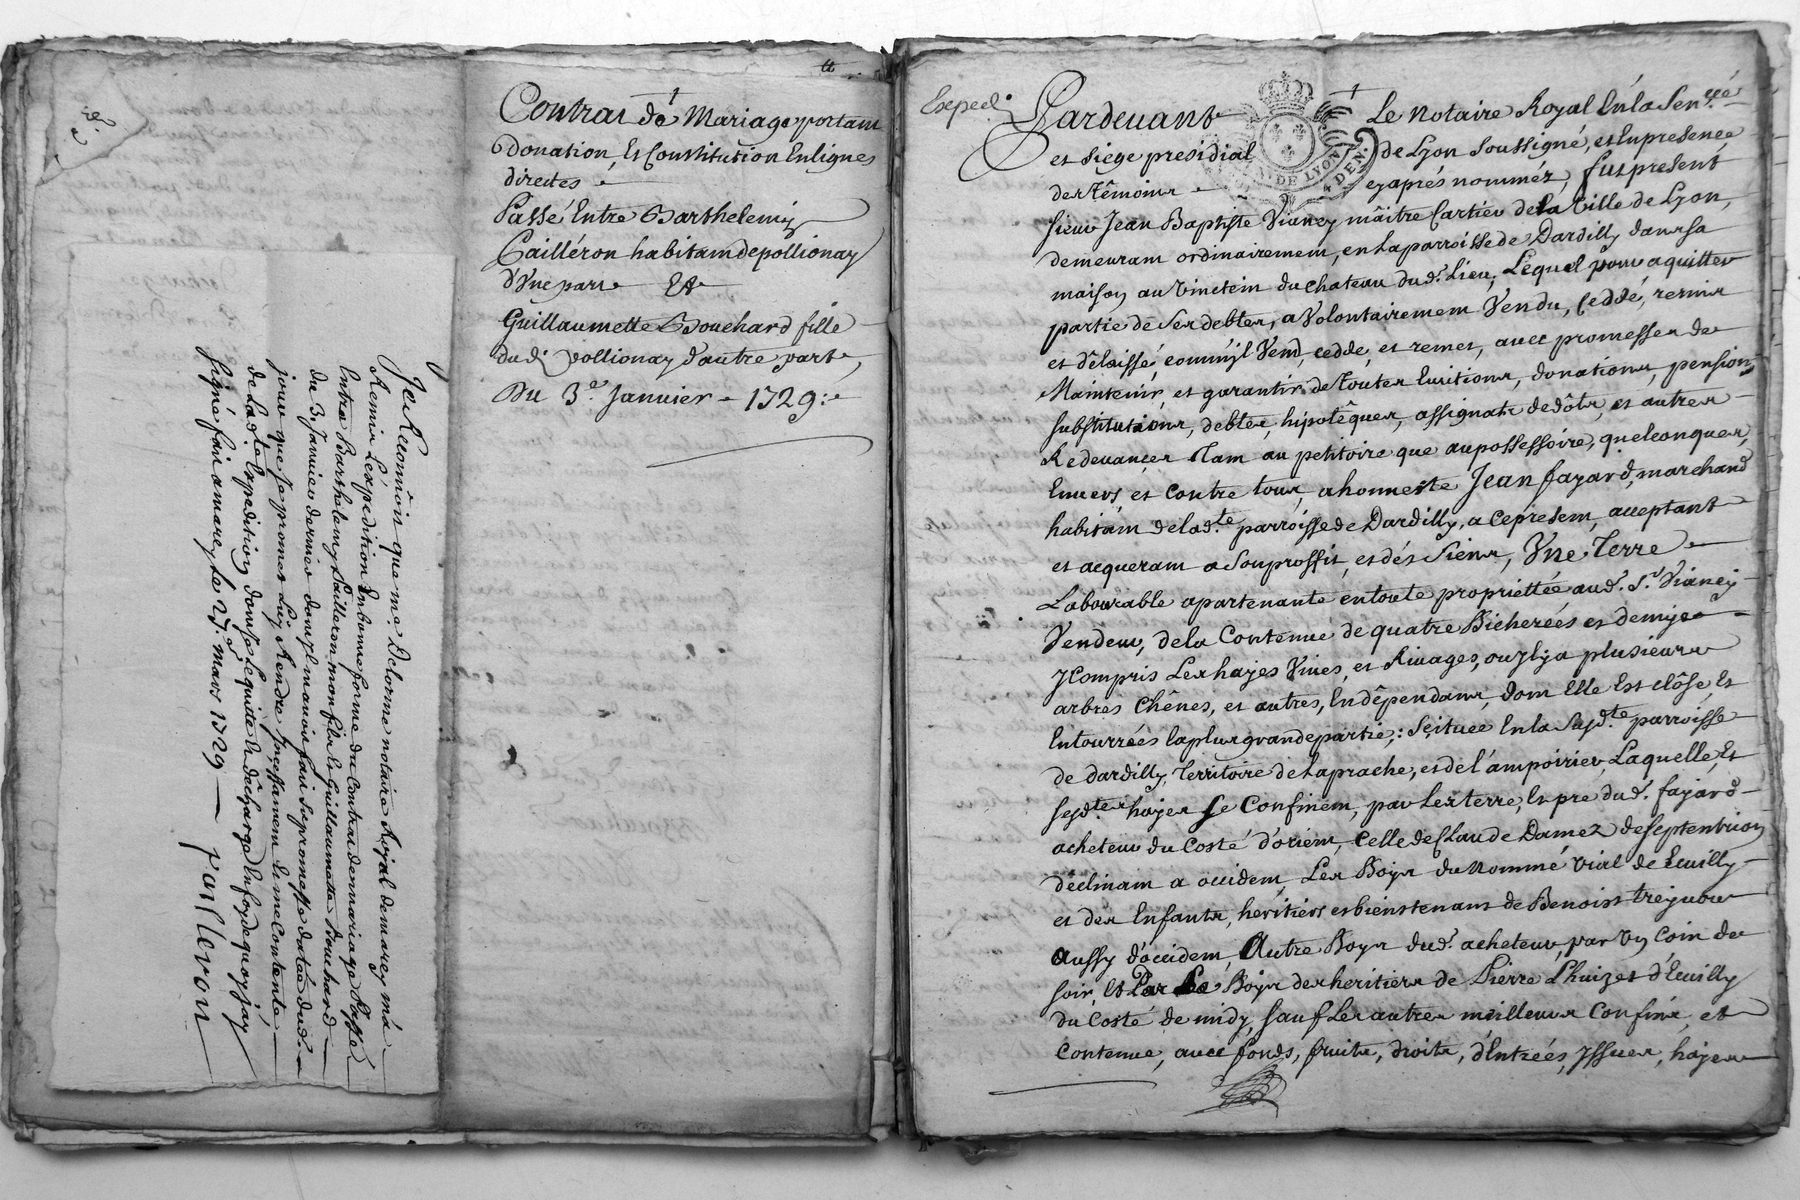 Contrat de Mariage portant
Donation, Et Constitution En lignes
directes
Passé Entre Barthelemy
Cailléron habitant de pollionay
d'Une part Et
Guillaumette Bouchard fille
dud. pollionay d'autre part,
Du 3.e Janvier 1729.
Je Reconnois que me. Delorme notaire Royal demarcy m'a
Remis L'expedition En bonne forme du Contrat de mariage Passé
Entre Barthelemy Cailleron mon fils Et Guillaumette Bouchard
du 3. Janvier dernier dont il m'avoit fait Sa promesse datée dud.
jour que Je promet Luy Rendre Incessamment Et me Contente
de Lad.te Expedition dont Je Le quitte Et décharge En foy de quoy j'ay
Signé fait a marcy Le 27.e mars 1729
Cailleron
Exped.
Pardevant Le Notaire Royal En la Sen.ccé
et siege presidial de Lyon Soussigné, et En presence
des Têmoins cy aprés nommés, fut present
sieur Jean Baptiste Vianey maître Cartier de La Ville de Lyon,
demeurant ordinairement, en La parroisse de Dardilly dans sa
maison au Vinctein du chateau dud. Lieu; Lequel pour aquitter
partie de Ses debtes, a Volontairement Vendu, Ceddé, remis
et délaissé, comm'jl Vend cedde, et remet, avec promesses de
Maintenir, et garantir de Toutes Evitions, donations, pensions
substitutions, debtes, hipotêques, assignats de dôts, et autres
Redevances Tant au petitoire que au possessoire, quelconques,
Envers, et Contre tous, a honneste Jean fayard, marchand
habitant de lad.te parroisse de Dardilly, a ce present, acceptant
et acquerant a Son proffit, et dés Siens, Vne Terre
Labourable apartenante en toute propriettée aud. S.r Vianey
Vendeur, de la Contenue de quatre Bicherées et demije
y Compris Les hayes Vives, et Rivages, ou jl y a plusieurs
arbres Chênes, et autres, En dépendans, dont Elle Est clôse, Et
Entourrées la plus grande partie: Scituée En la Susd.te parroisse
de dardilly, Territoire de La prache, et de l'ampoirier, Laquelle, Et
sesd.tes hayes Se Confinent, par Les terre, Et pre dud. fayard
acheteur du Costé d'orient, Celle de Claude Damez de Septentrion
déclinant a occident, Les Boys du Nommé vial de Ecuilly
et des Enfants, heritiers et bienstenans de Benoist trejuove
Aussy d'occident, Autre Boys dud. acheteur, par Vn Coin de
soir, et Par Le Boys des heritiers de Pierre L'huizet d'Ecuilly
du Costé de midy, Sauf Les autres meilleurs Confins, et
Contenue, avec fonds, fruits, droits, d'Entrées, Jssues, hayes